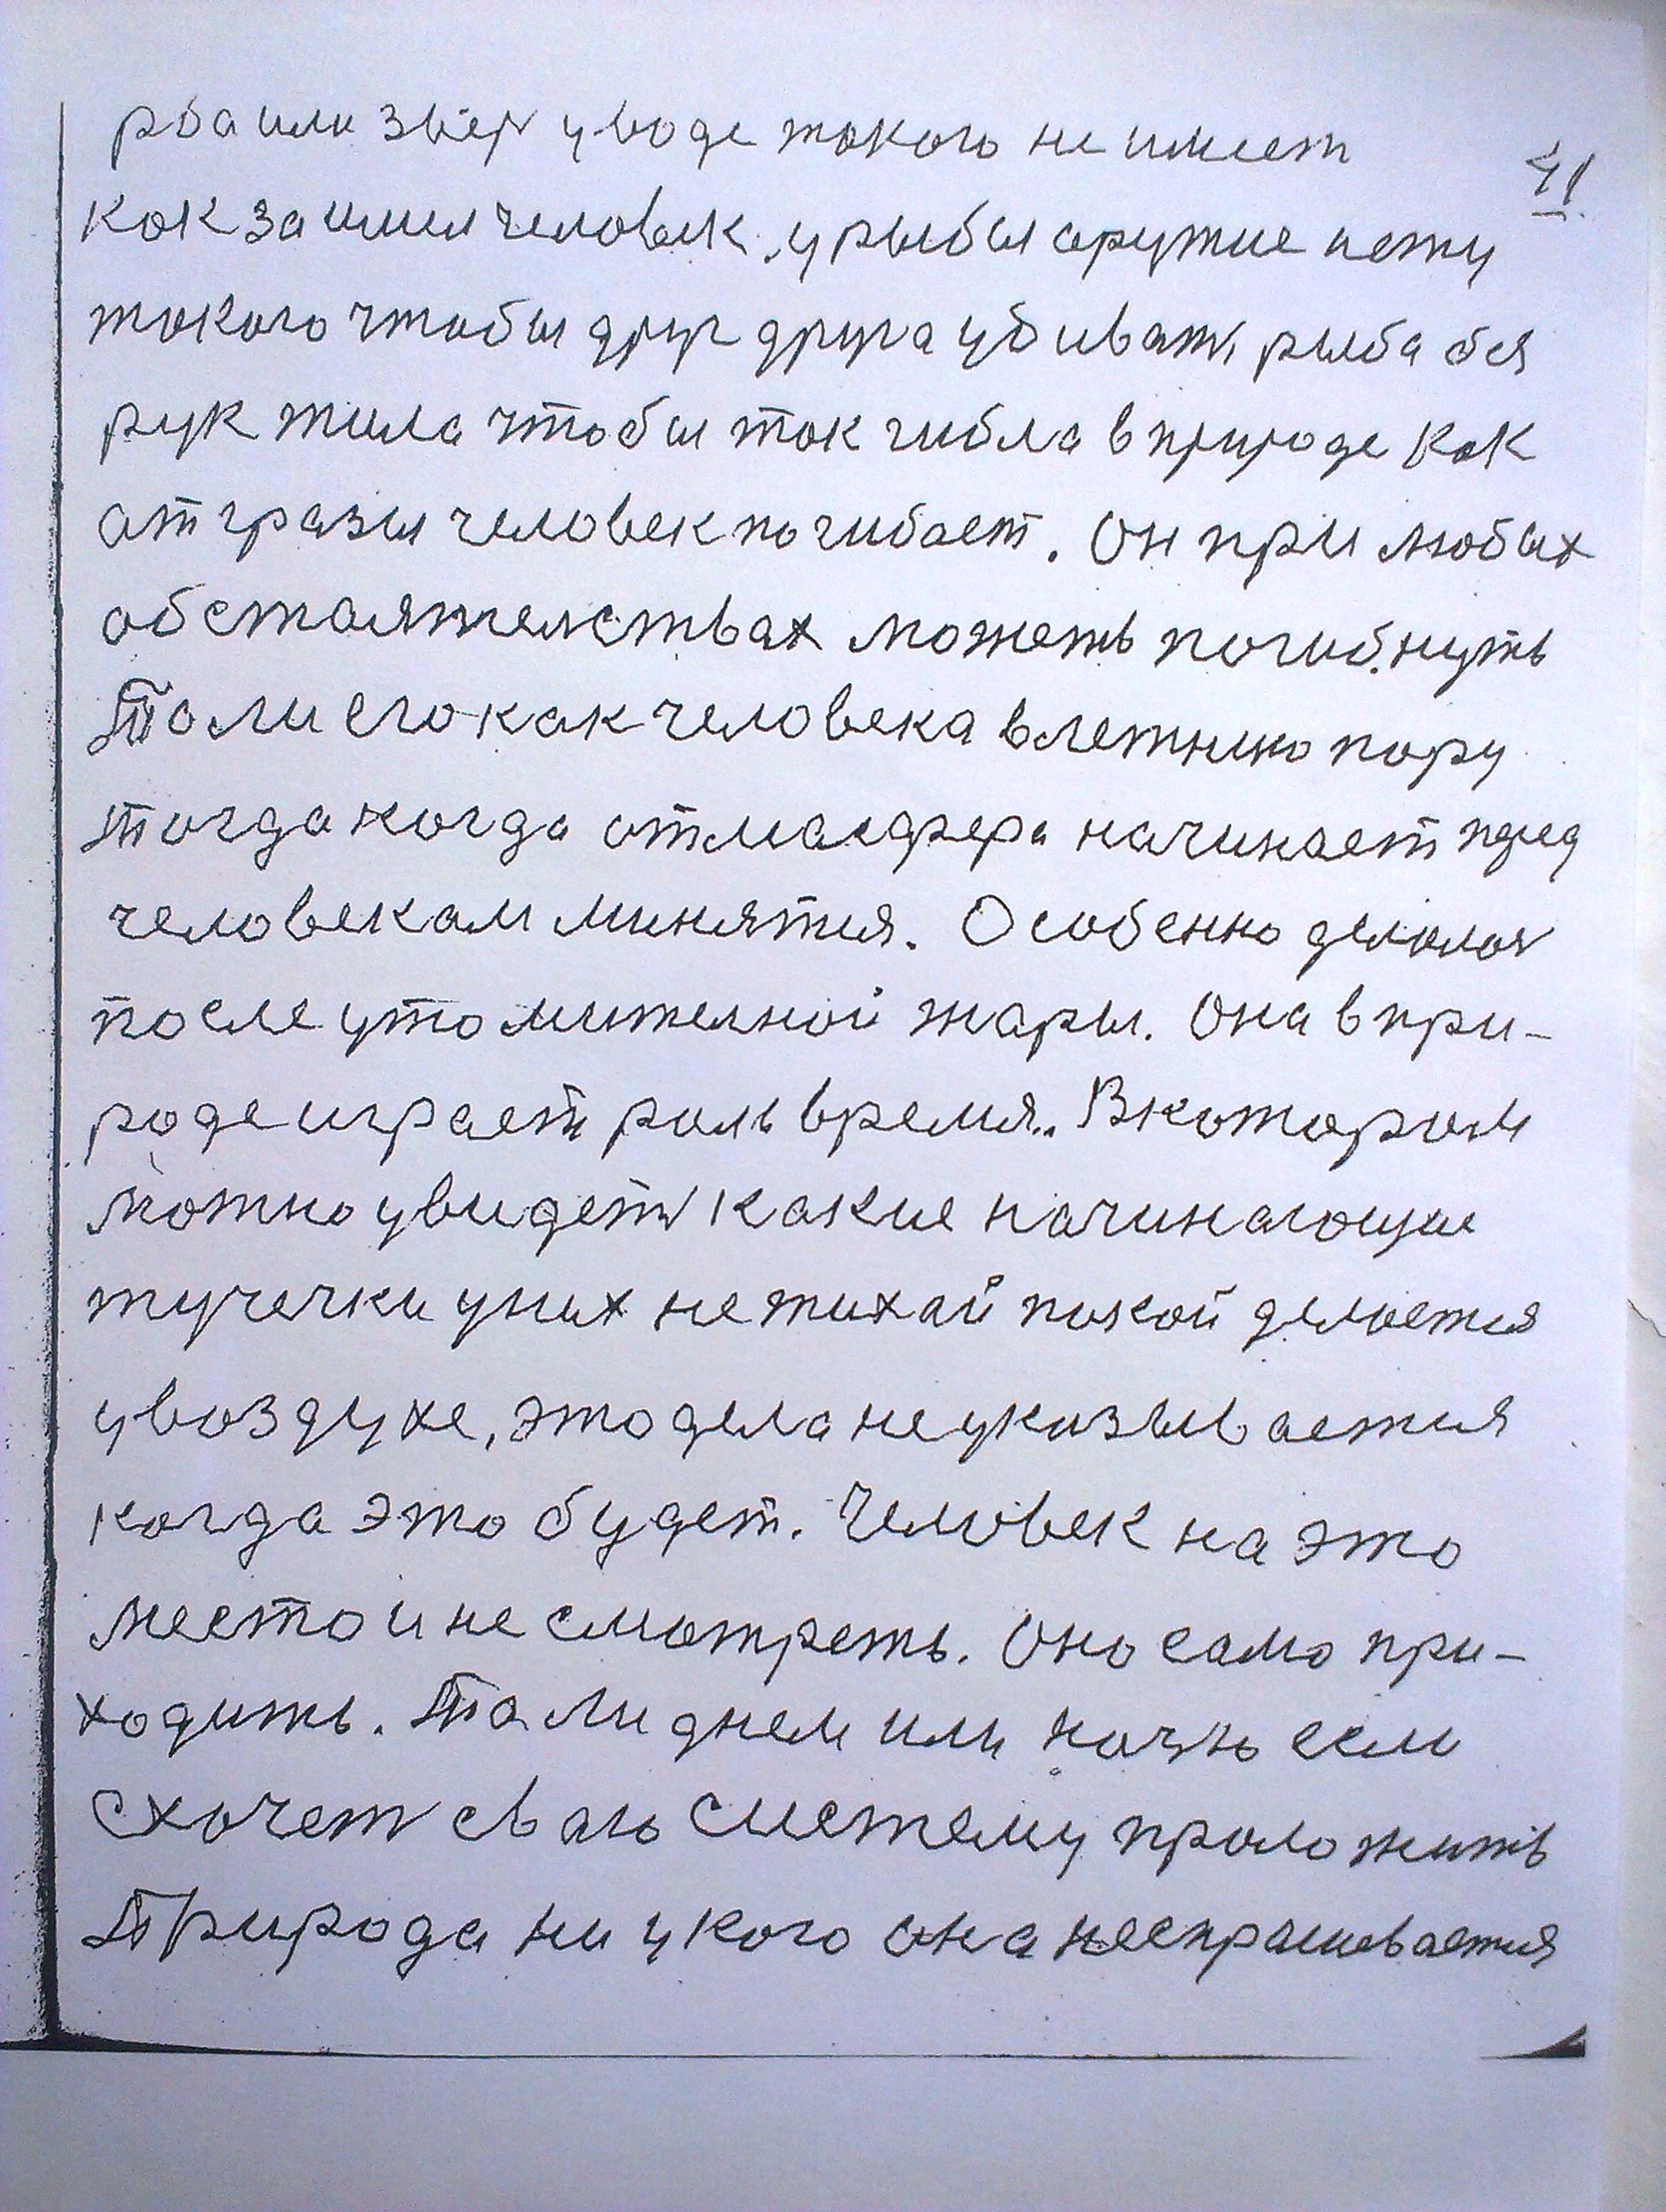 рба или зверь у воде токого не имеет
41
кок заимел человек, у рыбы аружие нету
токого чтобы друг друга убивать рыба бея
рук жила чтобы ток гибла в природе как
от гразы человек погибает. Он при любых
обстаятельствах можеть погибнуть
То ли его как человека в летнию пору
тогда когда отмасфера начинает перед
человекам минятся. Особенно делалоя
после утомительной жары. Она в при-
роде играеть роль время.. В котором
можно увидеть какие начинающие
тучечки у них не тихай покой делоется
у воздухе, это дела не указывается
когда это будет. Человек на это
место и не смотреть. Оно само при-
ходить. То ли днем или ночью если
схочеть сваю систему проложить
Природа ни у кого она неспрашевается